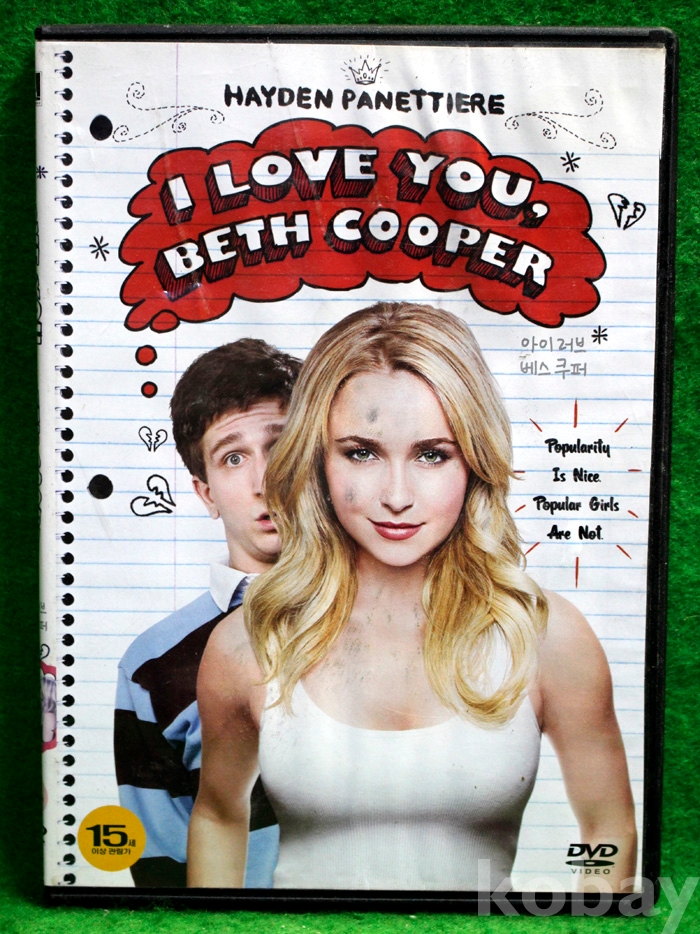 HAYDEN PANETTIERE
I LOVE YOU,
BETH COOPER
아이 러브
베스 쿠퍼
Popularity
Is Nice.
Popular Girls
Are Not.
15세
이상 관람가
DVD
VIDEO
kobay